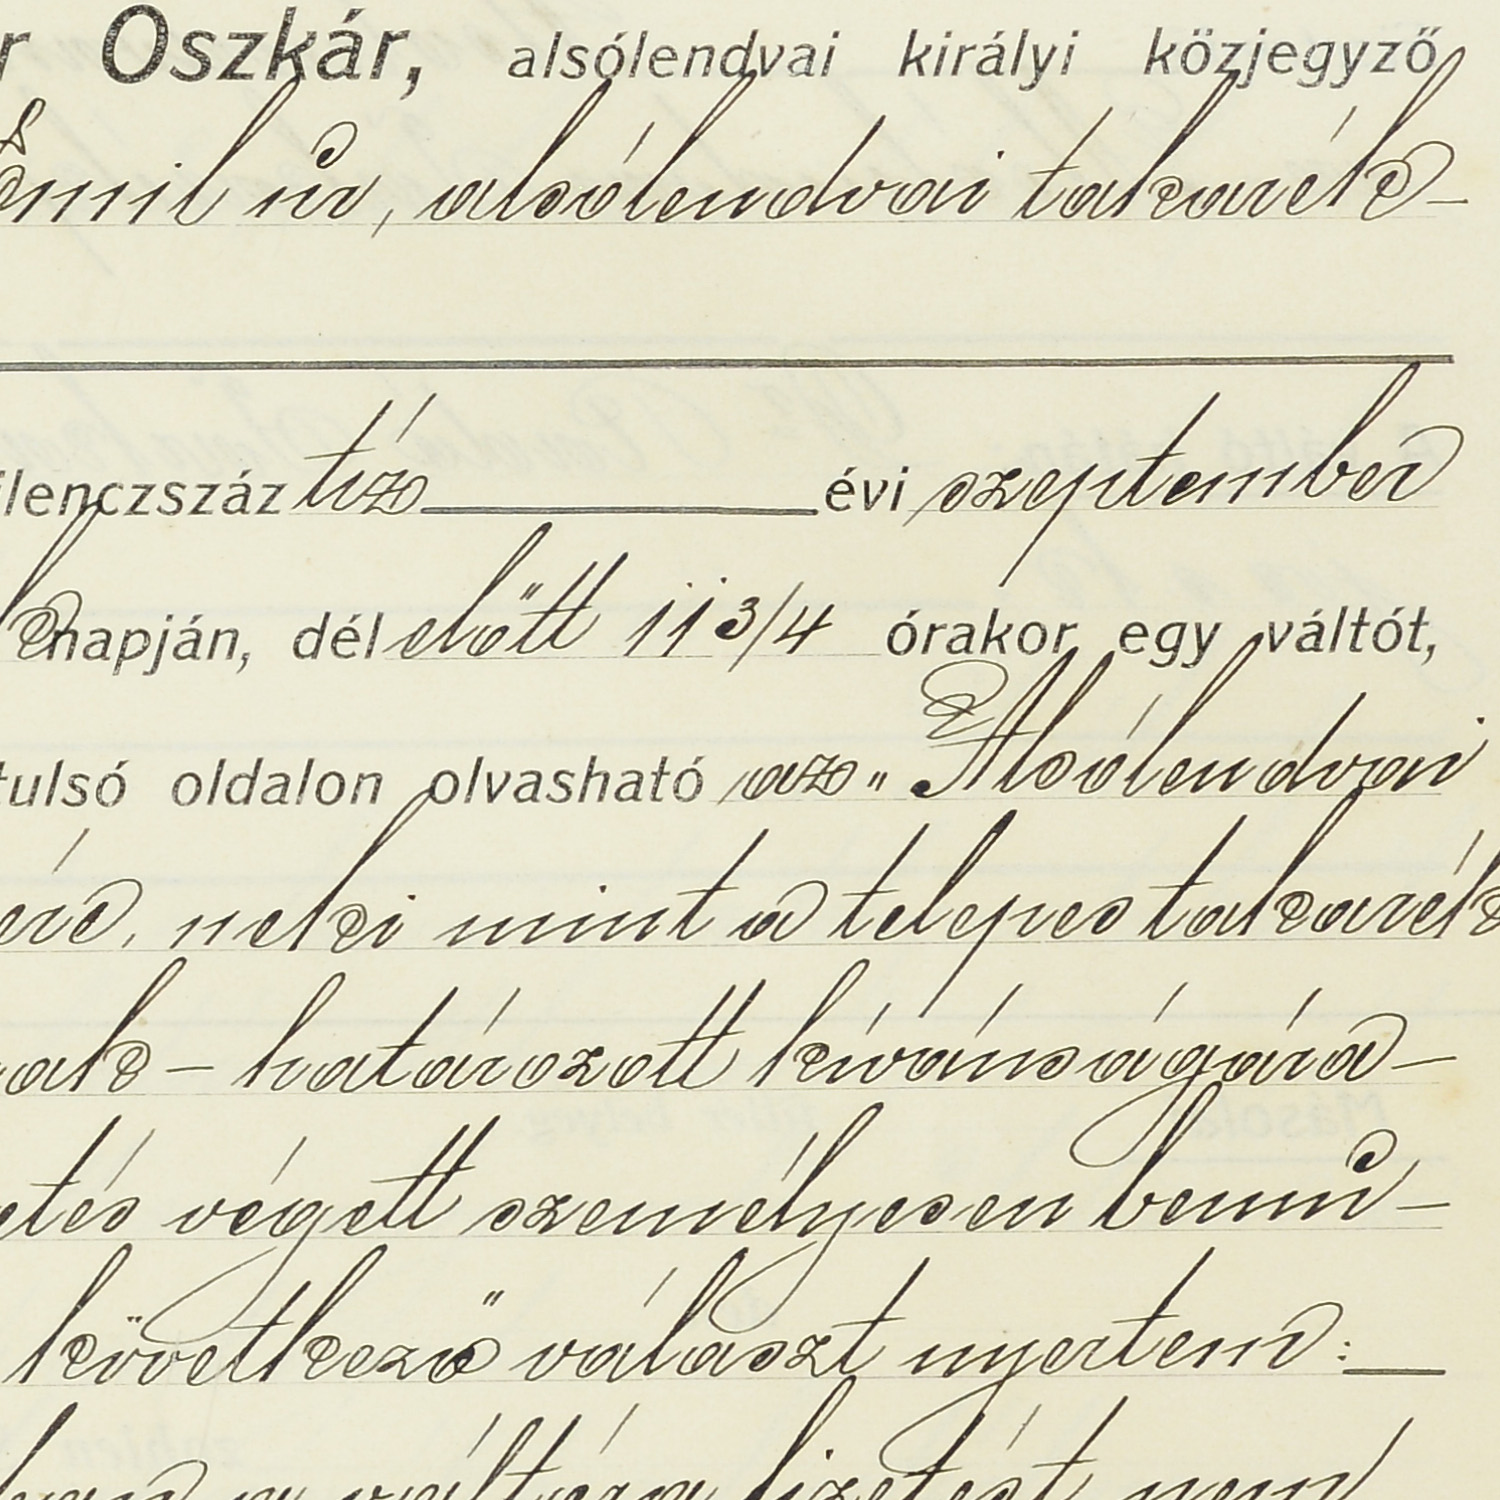 r Oszkár, alsólendvai királyi közjegyző
Emil úr, alsólendvai takarék-
ilenczszáz tíz évi szeptember
napján, délelőtt 11 3/4 órakor egy váltót,
tulsó oldalon olvasható az „Alsólendvai
ére, neki mint a telepes takarék
nak - határozott kívánságára -
etés végett személyesen bemu-
következő választ nyertem:
a váltóra fizetést nem